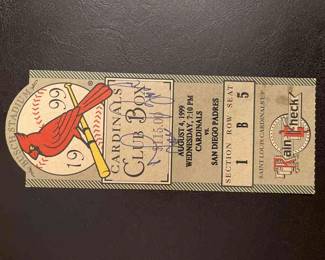 BUSCH STADIUM
1999
CARDINALS
CLUB BOX
$15.00
AUGUST 4, 1999
WEDNESDAY, 7:10 PM
CARDINALS
VS.
SAN DIEGO PADRES
SECTION ROW SEAT
1 B 5
Rain Check
SAINT LOUIS CARDINALS L.P.